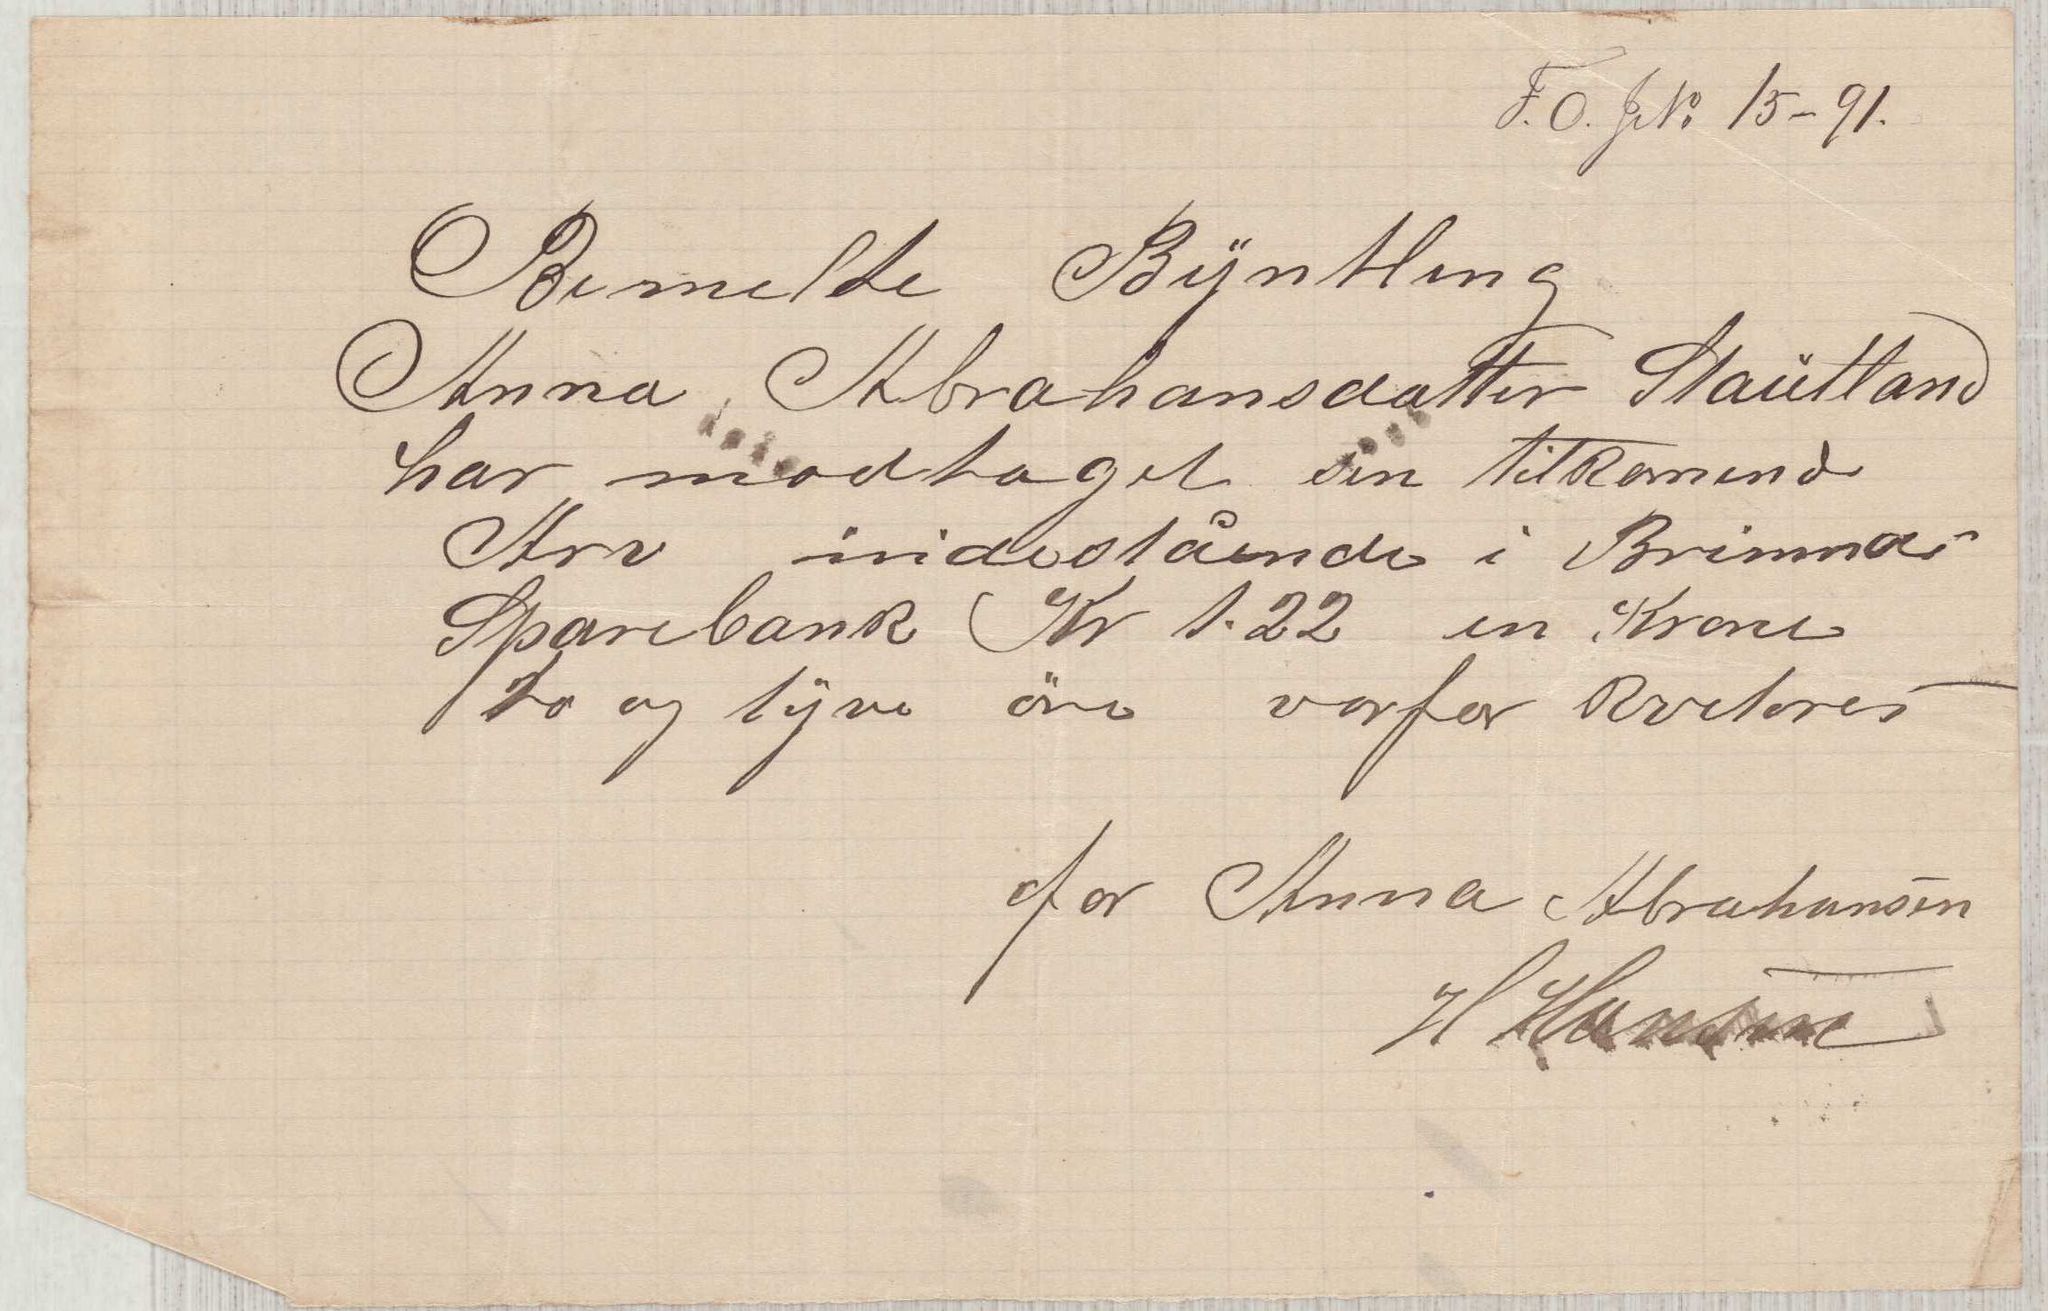 F. O. JNo 15-91.
Bemelte Byntling
Anna Abrahansdatter Staütland
har modtaget sin tilkomend
Arv indestående i Brimnæs
Sparebank Kr 1.22 en Krone
to og tyve öre vorfor kviteres
for Anna Abrahansen
H Hansen